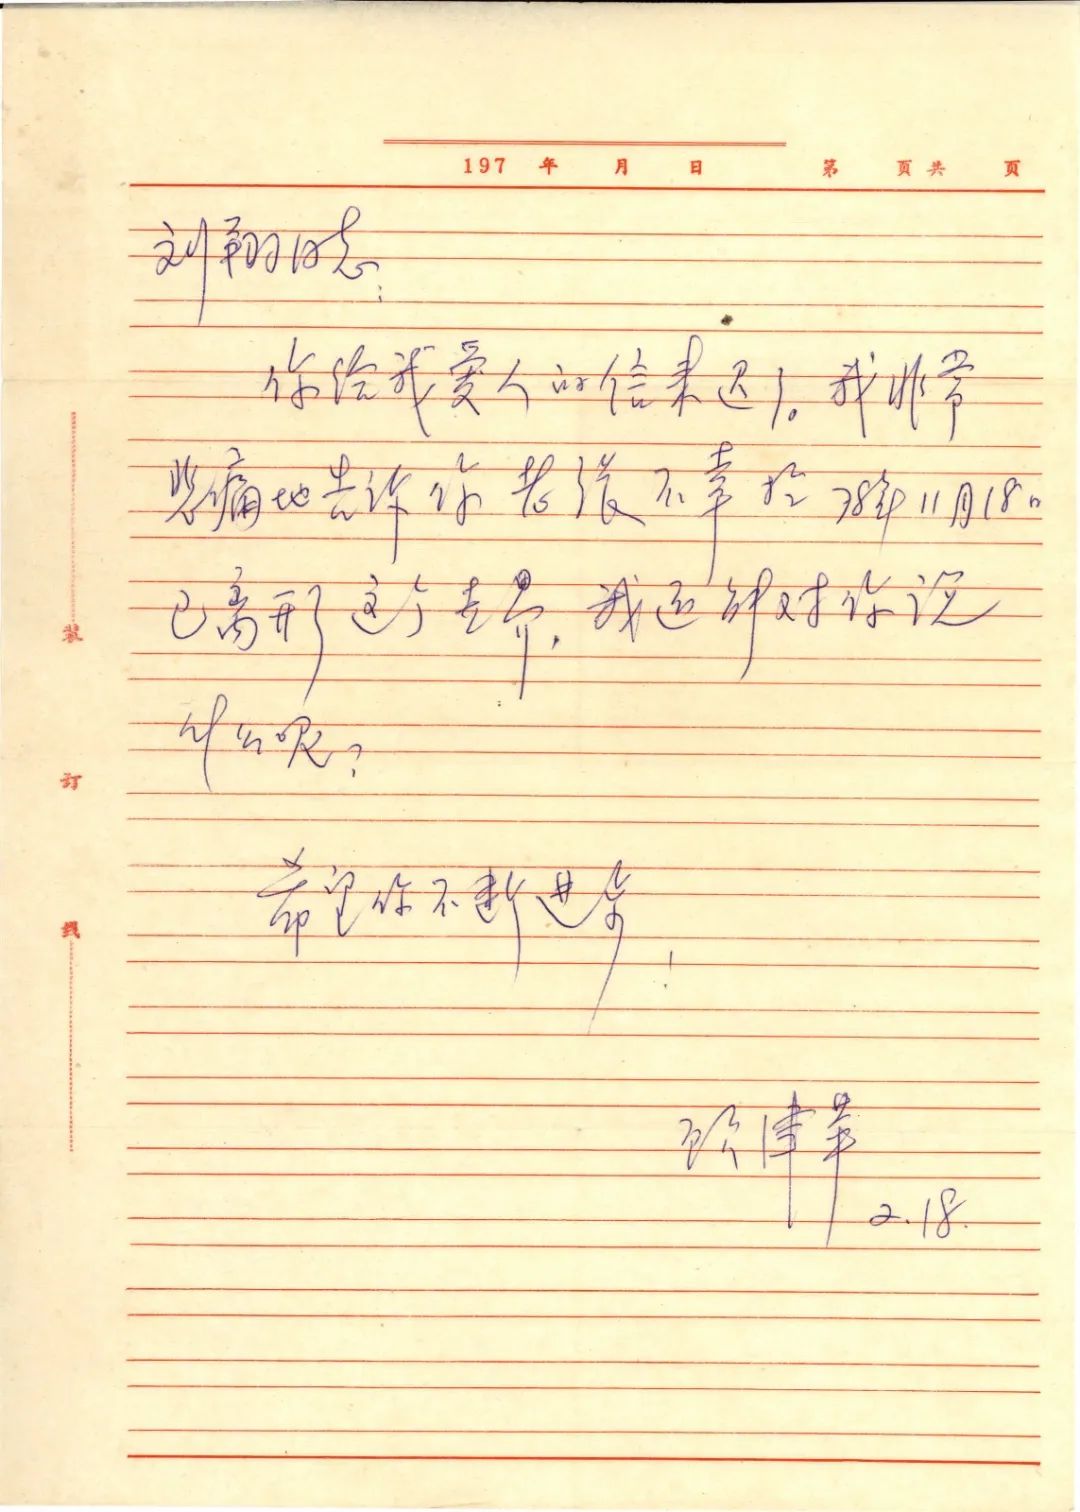 197 年 月 日 第 页共 页
刘翔同志：
你给我爱人的信来迟了。我非常
悲痛地告诉你老张不幸于78年11月18日
已离开了这个世界，我还能对你说
什么呢？
希望你不断进步！
津苹
2.18.
装
订
线